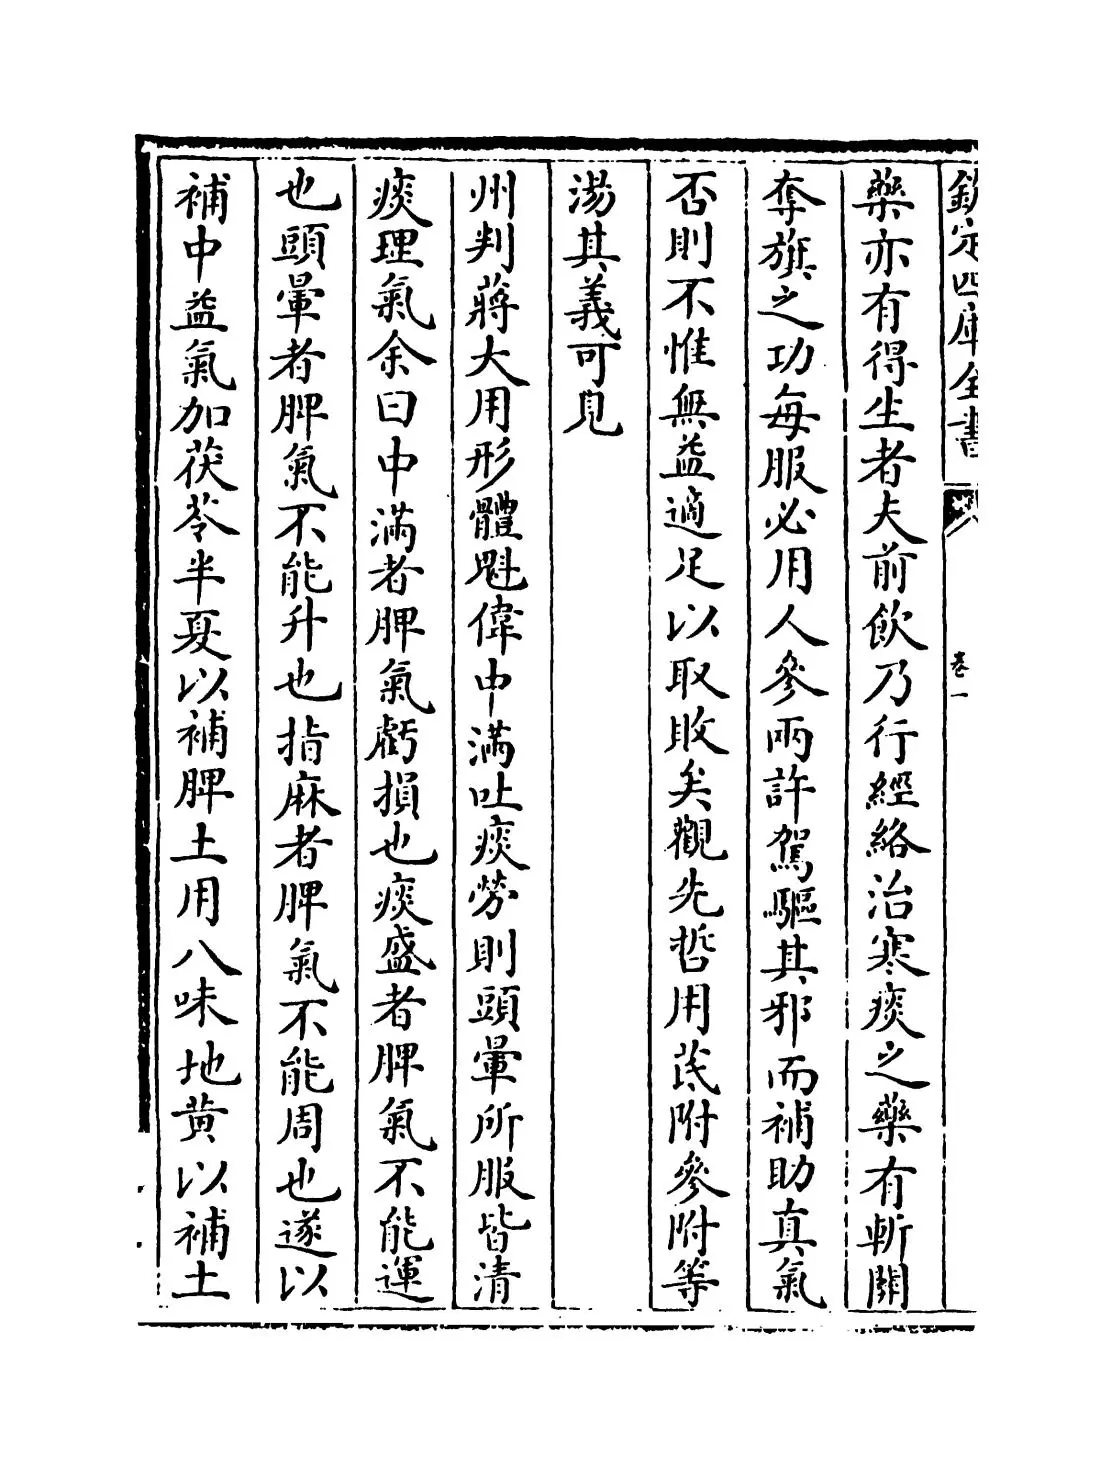 欽定四庫全書
卷一
藥亦有得生者夫前飲乃行經絡治寒痰之藥有斬關
奪旗之功每服必用人參兩許駕驅其邪而補助真氣
否則不惟無益適足以取敗矣觀先哲用芪附參附等
湯其義可見
州判蔣大用形體魁偉中滿吐痰勞則頭暈所服皆清
痰理氣余曰中滿者脾氣虧損也痰盛者脾氣不能運
也頭暈者脾氣不能升也指麻者脾氣不能周也遂以
補中益氣加茯苓半夏以補脾土用八味地黃以補土